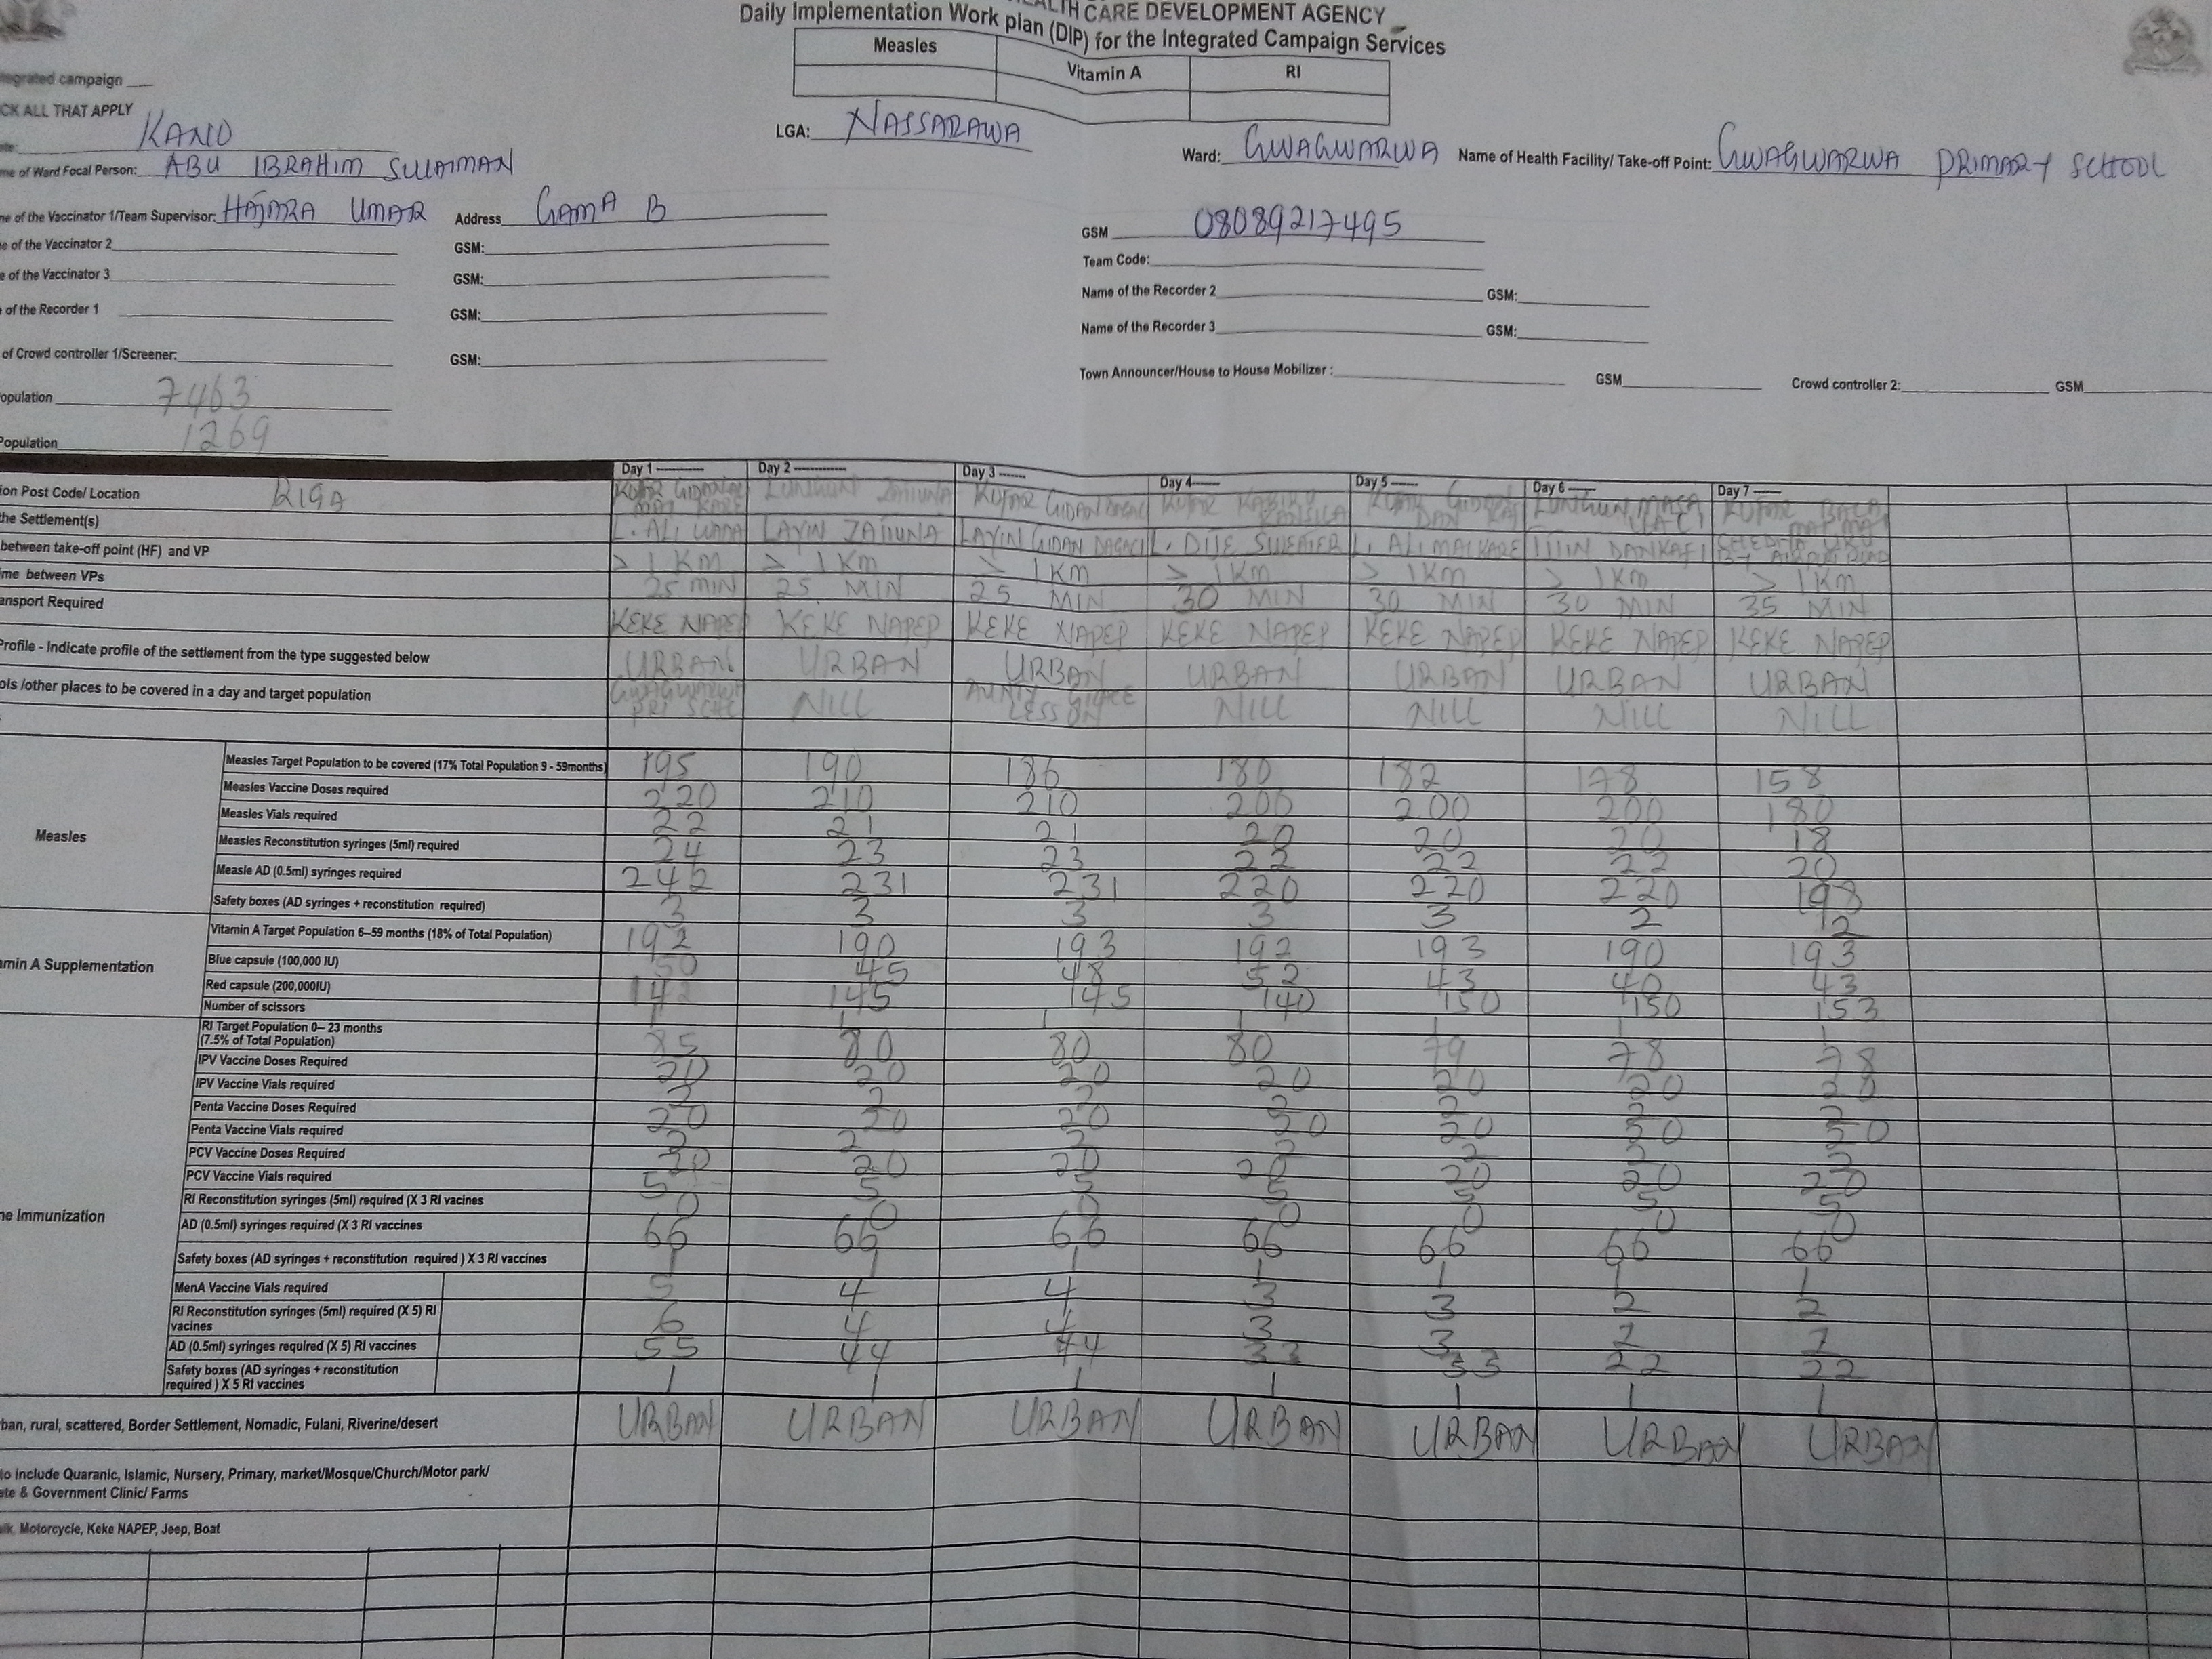 HEALTH CARE DEVELOPMENT AGENCY
Daily Implementation Work plan (DIP) for the Integrated Campaign Services
Measles Vitamin A RI
tegrated campaign
CK ALL THAT APPLY
KANO
LGA: NASSARAWA
Ward: GWAGWARWA Name of Health Facility/ Take-off Point: GWAGWARWA PRIMARY SCHOOL
me of Ward Focal Person: ABU IBRAHIM SULAIMAN
ne of the Vaccinator 1/Team Supervisor: HAJARA UMAR Address GAMA B GSM 08089217495
e of the Vaccinator 2 GSM: Team Code:
e of the Vaccinator 3 GSM: Name of the Recorder 2 GSM:
of the Recorder 1 GSM: Name of the Recorder 3 GSM:
of Crowd controller 1/Screener: GSM: Town Announcer/House to House Mobilizer : GSM Crowd controller 2: GSM
opulation 7463
Population 1269
Day 1 Day 2 Day 3 Day 4 Day 5 Day 6 Day 7
ion Post Code/ Location RIGA KOFAR LUNGUN ZAITUNA KOFAR GIDAN DAGACI KOFAR KABIRU KANSILA KOFAR LUNGUN MASA KOFAR BALA
the Settlement(s) L. ALI WADA LAYIN ZAITUNA LAYIN GIDAN DAGACI L. DIJE SWEATER L. ALI MAI KARE TITIN DANKAFI
between take-off point (HF) and VP > 1 KM > 1KM > 1KM > 1KM > 1KM > 1KM > 1KM
ime between VPs 25 MIN 25 MIN 25 MIN 30 MIN 30 MIN 30 MIN 35 MIN
ansport Required KEKE NAPEP KEKE NAPEP KEKE NAPEP KEKE NAPEP KEKE NAPEP KEKE NAPEP KEKE NAPEP
Profile - Indicate profile of the settlement from the type suggested below URBAN URBAN URBAN URBAN URBAN URBAN URBAN
ols /other places to be covered in a day and target population GWAGWARWA PRI SCHL NILL AUNTY GRACE LESSON NILL NILL NILL NILL
Measles
Measles Target Population to be covered (17% Total Population 9 - 59months) 195 190 186 180 182 178 158
Measles Vaccine Doses required 220 210 210 200 200 200 180
Measles Vials required 22 21 21 20 20 20 18
Measles Reconstitution syringes (5ml) required 24 23 23 22 22 22 20
Measle AD (0.5ml) syringes required 242 231 231 220 220 220 198
Safety boxes (AD syringes + reconstitution required) 3 3 3 3 3 2 2
min A Supplementation
Vitamin A Target Population 6–59 months (18% of Total Population) 192 190 193 192 193 190 193
Blue capsule (100,000 IU) 50 45 48 52 43 40 43
Red capsule (200,000IU) 142 145 145 140 150 150 153
Number of scissors 1 1 1 1 1 1 1
ne Immunization
RI Target Population 0– 23 months
(7.5% of Total Population) 85 80 80 80 79 78 78
IPV Vaccine Doses Required 20 20 20 20 20 20 20
IPV Vaccine Vials required 2 2 2 2 2 2 2
Penta Vaccine Doses Required 20 20 20 20 20 20 20
Penta Vaccine Vials required 2 2 2 2 2 2 2
PCV Vaccine Doses Required 20 20 20 20 20 20 20
PCV Vaccine Vials required 5 5 5 5 5 5 5
RI Reconstitution syringes (5ml) required (X 3 RI vacines 0 0 0 0 0 0 0
AD (0.5ml) syringes required (X 3 RI vaccines 66 66 66 66 66 66 66
Safety boxes (AD syringes + reconstitution required ) X 3 RI vaccines 1 1 1 1 1 1 1
MenA Vaccine Vials required 5 4 4 3 3 2 2
RI Reconstitution syringes (5ml) required (X 5) RI
vacines 6 4 4 3 3 2 2
AD (0.5ml) syringes required (X 5) RI vaccines 55 44 44 33 33 22 22
Safety boxes (AD syringes + reconstitution
required ) X 5 RI vaccines 1 1 1 1 1 1 1
ban, rural, scattered, Border Settlement, Nomadic, Fulani, Riverine/desert URBAN URBAN URBAN URBAN URBAN URBAN URBAN
to include Quaranic, Islamic, Nursery, Primary, market/Mosque/Church/Motor park/
ate & Government Clinic/ Farms
alk, Motorcycle, Keke NAPEP, Jeep, Boat